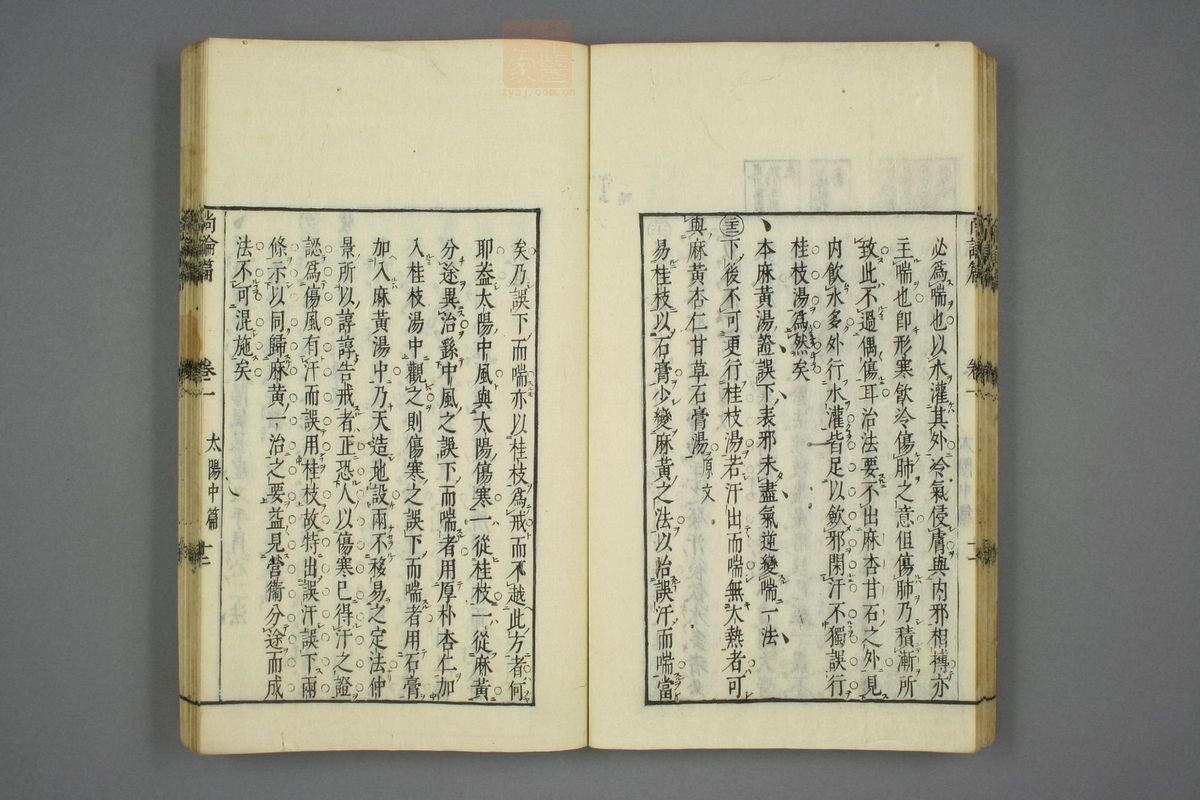 必爲喘也以水灌其外冷氣侵膚與內邪相摶亦
主喘也卽形寒飲冷傷肺之意但傷肺乃積漸所
致此不過偶傷耳治法要不出麻杏甘石之外見
內飲水多外行水灌皆足以斂邪閉汗不獨誤行
桂枝湯爲然矣
本麻黃湯證誤下表邪未盡氣逆變喘一法
下後不可更行桂枝湯若汗出而喘無大熱者可
與麻黃杏仁甘草石膏湯原文
易桂枝以石膏少變麻黃之法以治誤汗而喘當
矣乃誤下而喘亦以桂枝爲戒而不越此方者何
耶葢太陽中風與太陽傷寒一從桂枝一從麻黃
分途異治繇中風之誤下而喘者用厚朴杏仁加
入桂枝湯中觀之則傷寒之誤下而喘者用石膏
加入麻黃湯中乃天造地設兩不移易之定法仲
景所以諄諄告戒者正恐人以傷寒已得汗之證
認爲傷風有汗而誤用桂枝故特出誤汗誤下兩
條示以同歸麻黃一治之要益見營衞分途而成
法不可混施矣
尚論篇 卷一 太陽中篇 十二
zysj.com.cn